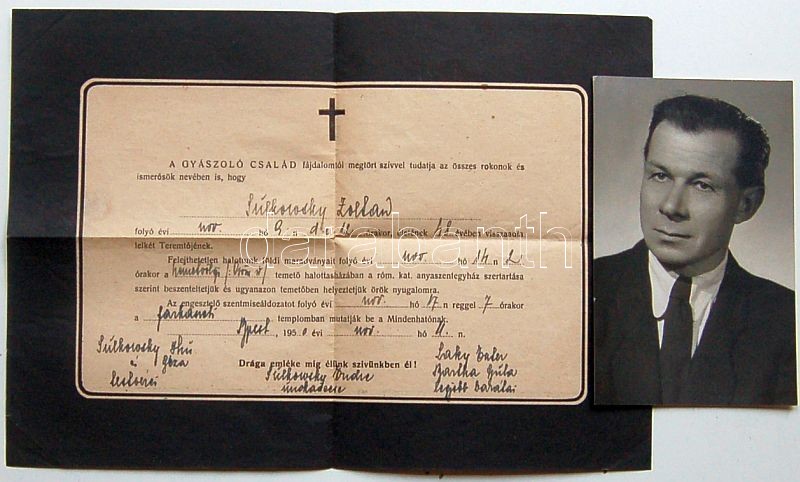 A GYÁSZOLÓ CSALÁD fájdalomtól megtört szívvel tudatja az összes rokonok és
ismerősök nevében is, hogy
Sulkowsky Zoltán
folyó évi nov. hó 9 n d. órakor, életének évében visszaadta
lelkét Teremtőjének.
Felejthetetlen halottunk földi maradványait folyó évi nov. hó 14 n 2
órakor a temető halottasházában a róm. kat. anyaszentegyház szertartása
szerint beszenteltetjük és ugyanazon temetőben helyeztetjük örök nyugalomra.
Az engesztelő szentmiseáldozatot folyó évi nov. hó 17 n reggel 7 órakor
a farkasréti templomban mutatják be a Mindenhatónak.
Bpest, 1950 évi nov. hó 11. n.
Drága emléke míg élünk szívünkben él!
Sulkowsky
és Géza
testvérei
Sulkowsky Endre
unokaöccse
Laky Eszter
Bartha Gyula
legjobb barátai
darabanth